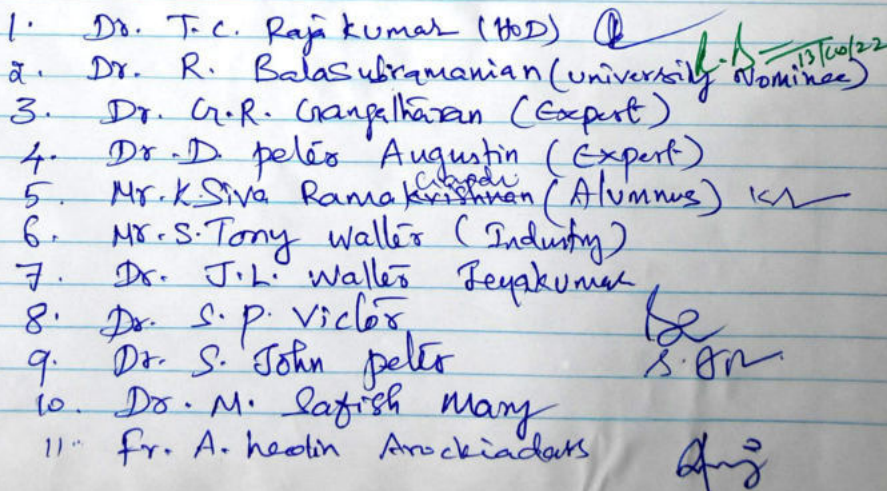 1. Dr. T. C. Raja Kumar (HOD)
13/10/22
2. Dr. R. Balasubramanian (University Nominee)
3. Dr. G.R. Gangatharan (Expert)
4. Dr. D. Peter Augustin (Expert)
5. Mr. K. Siva Rama (Alumnus)
6. Mr. S. Tony Walter (Industry)
7. Dr. J.L. Walter Jeyakumar
8. Dr. S. P. Victor
9. Dr. S. John Peter
10. Dr. M. Safish Mary
11. Fr. A. Arockiadass